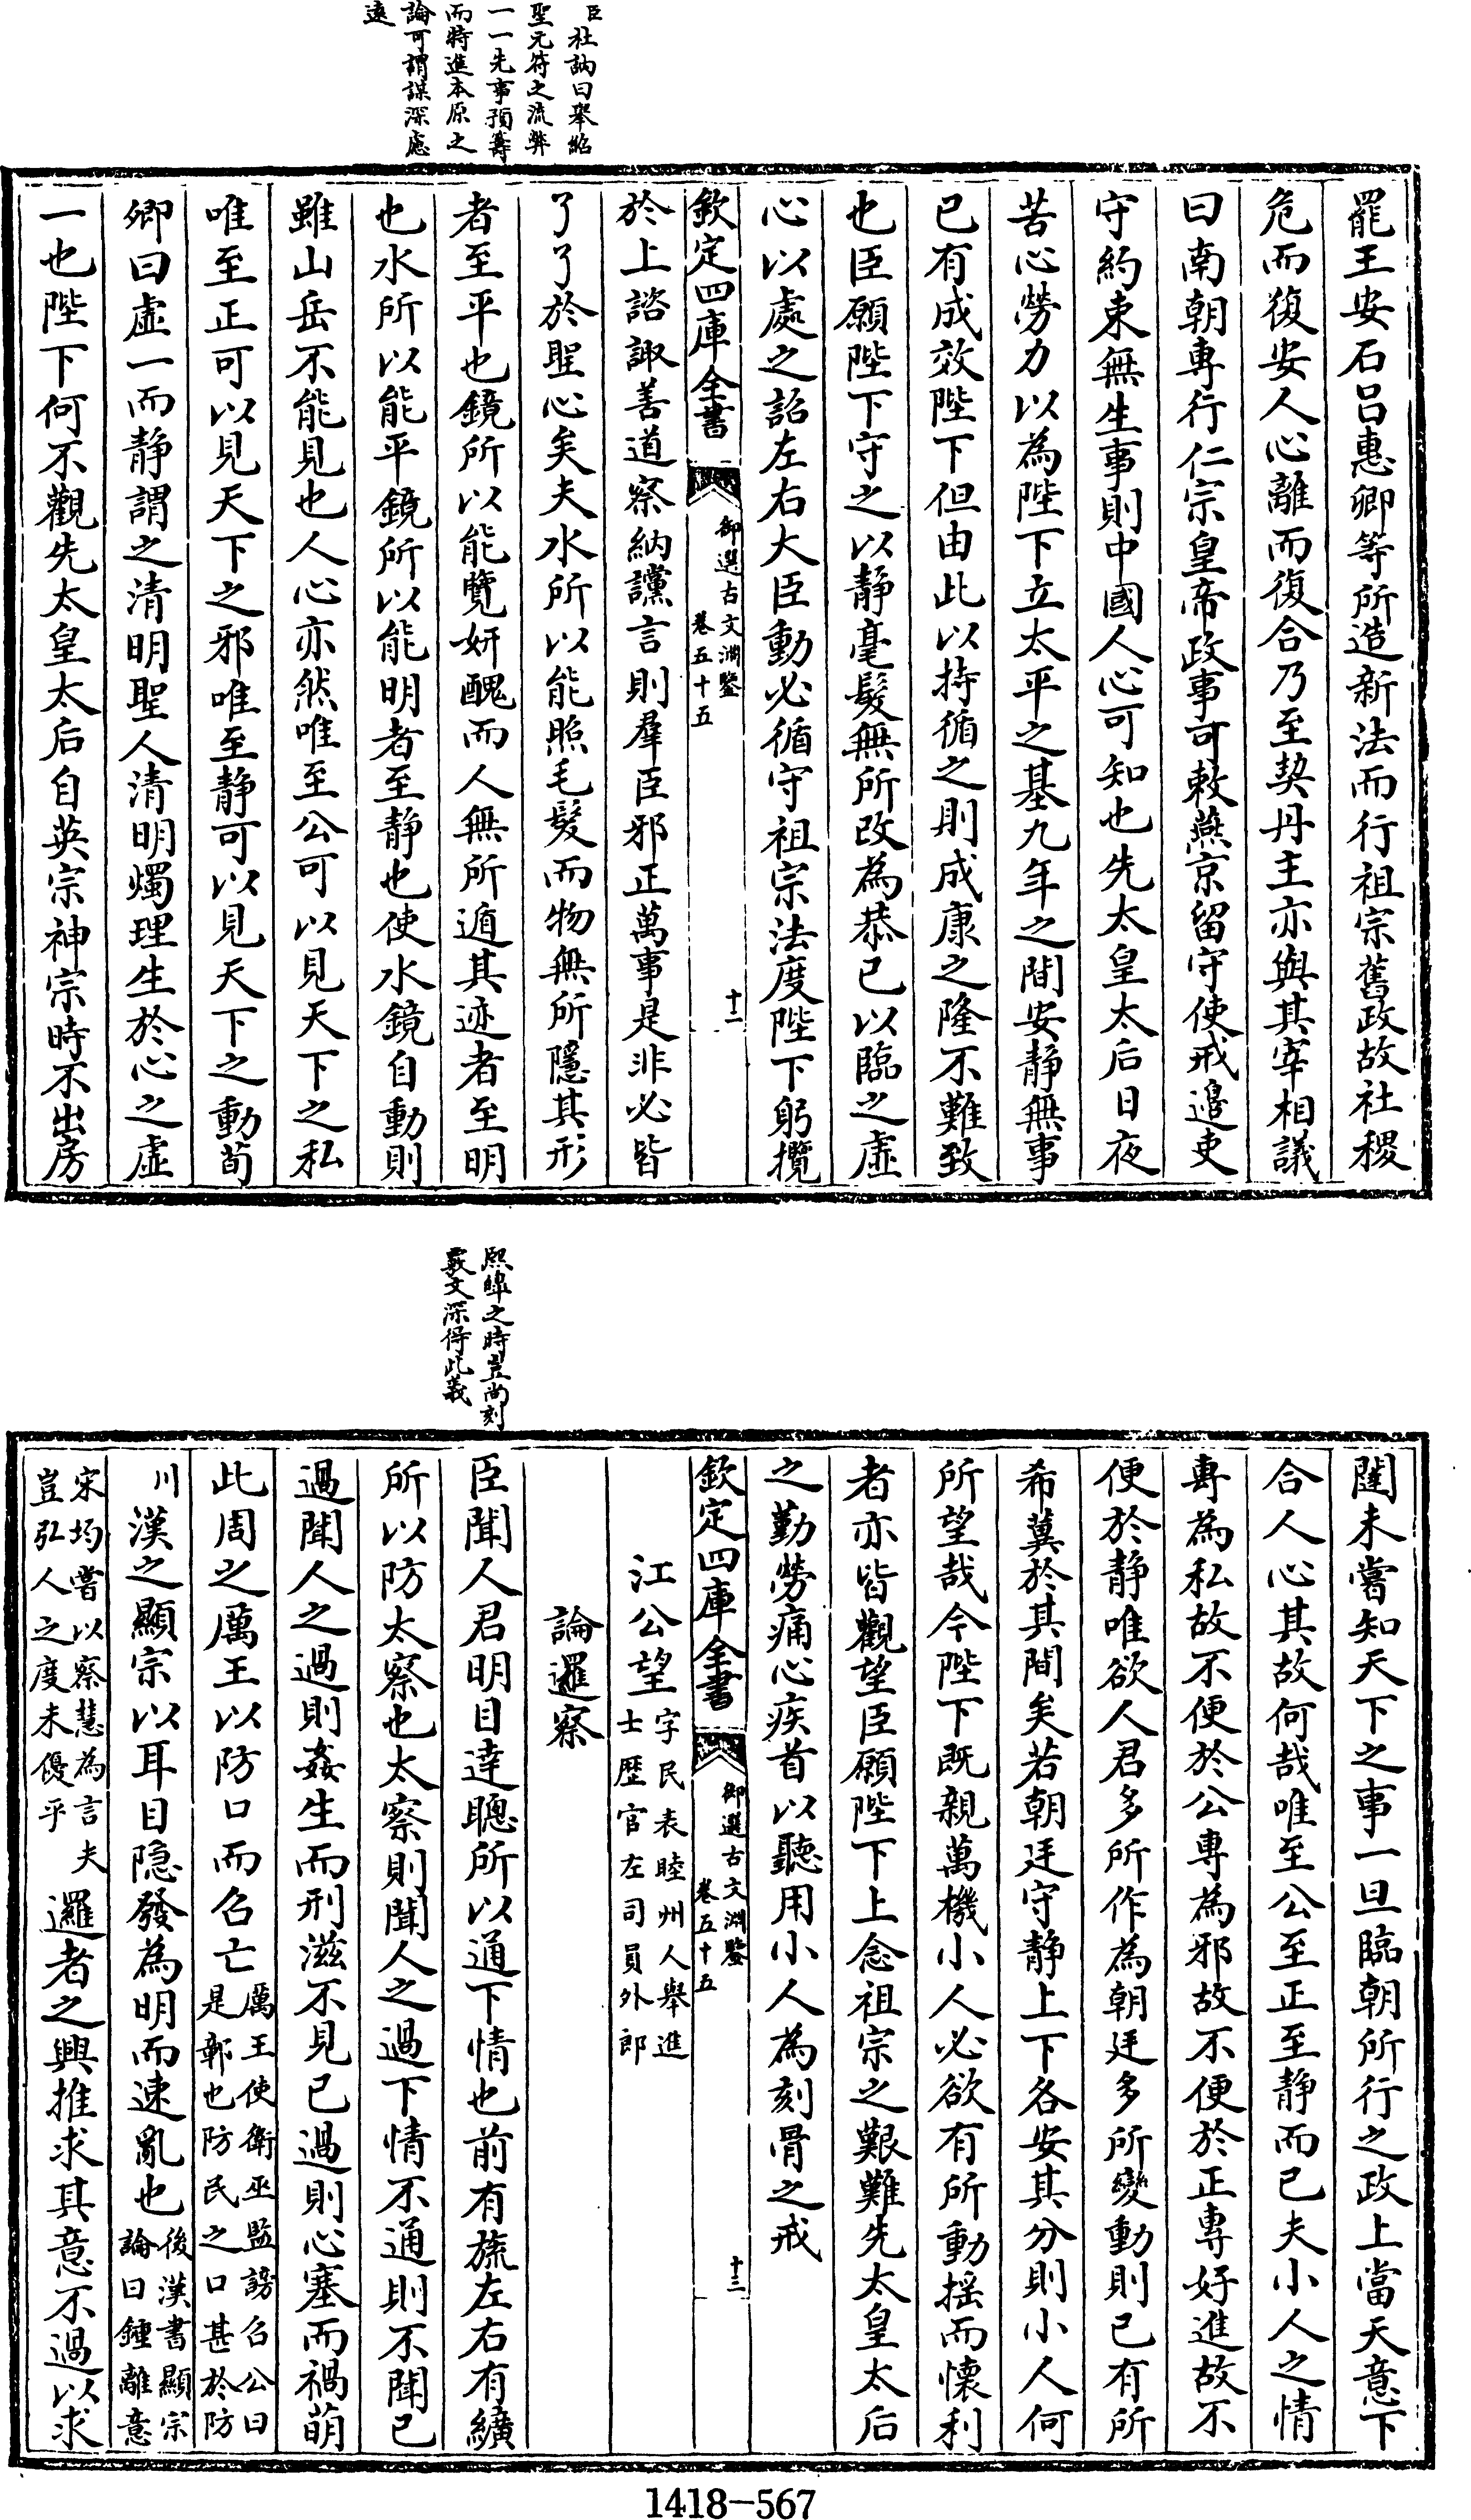 臣杜訥曰舉紹
聖元符之流弊
一一先事預籌
而特進本原之
論可謂謀深慮
遠
罷王安石呂惠卿等所造新法而行祖宗舊政故社稷
危而復安人心離而復合乃至契丹主亦與其宰相議
曰南朝專行仁宗皇帝政事可敕燕京留守使戒邊吏
守約束無生事則中國人心可知也先太皇太后日夜
苦心勞力以為陛下立太平之基九年之間安静無事
已有成效陛下但由此以持循之則成康之隆不難致
也臣願陛下守之以静毫髮無所改為恭己以臨之虛
心以處之詔左右大臣動必循守祖宗法度陛下躬攬
欽定四庫全書
御選古文淵鑒
卷五十五
十二
於上諮諏善道察納讜言則羣臣邪正萬事是非必皆
了了於聖心矣夫水所以能照毛髮而物無所隱其形
者至平也鏡所以能覽妍醜而人無所遁其迹者至明
也水所以能平鏡所以能明者至静也使水鏡自動則
雖山岳不能見也人心亦然唯至公可以見天下之私
唯至正可以見天下之邪唯至静可以見天下之動荀
卿曰虛一而静謂之清明聖人清明燭理生於心之虛
一也陛下何不觀先太皇太后自英宗神宗時不出房
熙皡之時豈尚刻
覈文深得此義
闥未嘗知天下之事一旦臨朝所行之政上當天意下
合人心其故何哉唯至公至正至静而已夫小人之情
專為私故不便於公專為邪故不便於正專好進故不
便於静唯欲人君多所作為朝廷多所變動則已有所
希冀於其間矣若朝廷守静上下各安其分則小人何
所望哉今陛下既親萬機小人必欲有所動揺而懐利
者亦皆觀望臣願陛下上念祖宗之艱難先太皇太后
之勤勞痛心疾首以聽用小人為刻骨之戒
欽定四庫全書
御選古文淵鑒
卷五十五
十三
江公望字民表睦州人舉進
士歴官左司員外郎
論邏察
臣聞人君明目達聰所以通下情也前有旒左右有纊
所以防太察也太察則聞人之過下情不通則不聞已
過聞人之過則姦生而刑滋不見已過則心塞而禍萌
此周之厲王以防口而召亡厲王使衛巫監謗召公曰
是鄣也防民之口甚於防
川漢之顯宗以耳目隐發為明而速亂也後漢書顯宗
論曰鍾離意
宋均嘗以察慧為言夫
豈弘人之度未優乎邏者之興推求其意不過以求
1418-567